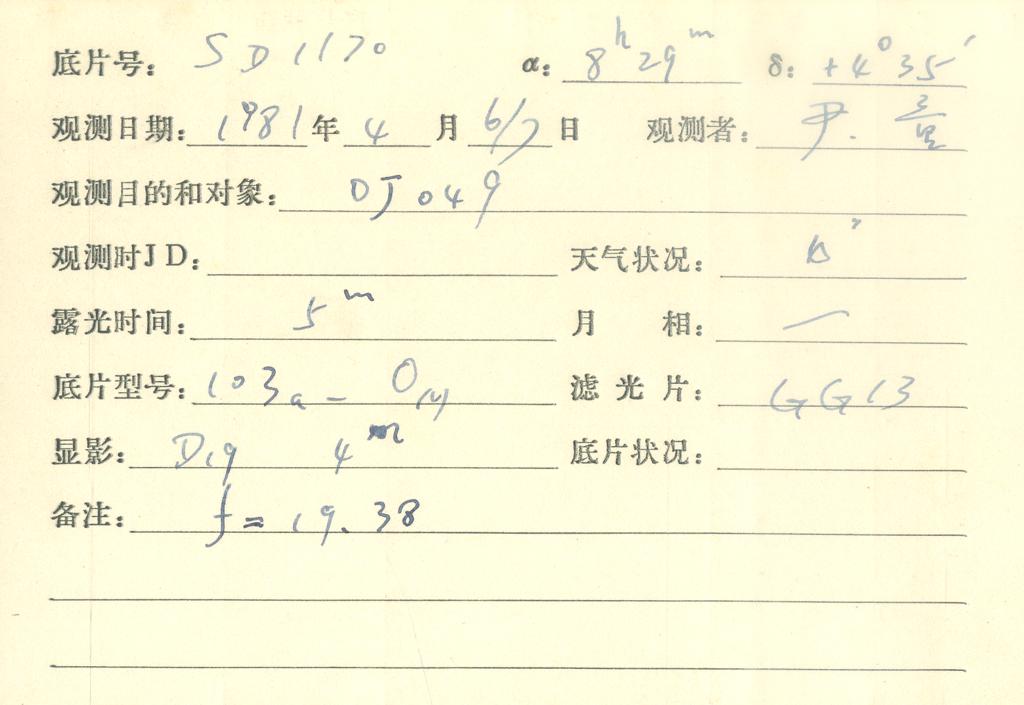 底片号: SD1170 α: 8h 29m δ: +4° 35′
观测日期: 1981 年 4 月 6/7 日 观测者: 尹.
观测目的和对象: OJ 049
观测时JD: 天气状况:
露光时间: 5m 月 相: 一
底片型号: 103a-O 滤光片: GG13
显影: D19 4m 底片状况:
备注: f = 19.38